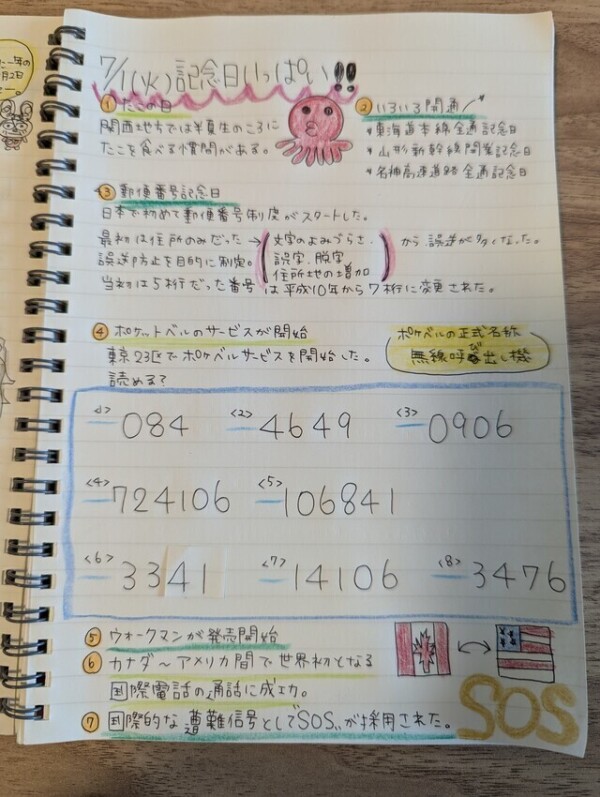 7/1(火)記念日いっぱい!!
① たこの日
関西地方では半夏生のころに
たこを食べる慣習がある。
② いろいろ開通
*東海道本線全通記念日
*山形新幹線開業記念日
*名神高速道路全通記念日
③ 郵便番号記念日
日本で初めて郵便番号制度がスタートした。
最初は住所のみだった→(文字のよみづらさ、
誤字、脱字
住所地の増加)から誤送が多くなった。
誤送防止を目的に制定。
当初は5桁だった番号は平成10年から7桁に変更された。
④ ポケットベルのサービスが開始
東京23区でポケベルサービスを開始した。
ポケベルの正式名称
無線呼び出し機
読める?
<1> 084 <2> 4649 <3> 0906
<4> 724106 <5> 106841
<6> 3341 <7> 14106 <8> 3476
⑤ ウォークマンが発売開始
⑥ カナダ～アメリカ間で世界初となる
国際電話の通話に成功。
⑦ 国際的な遭難信号としてSOSが採用された。
SOS